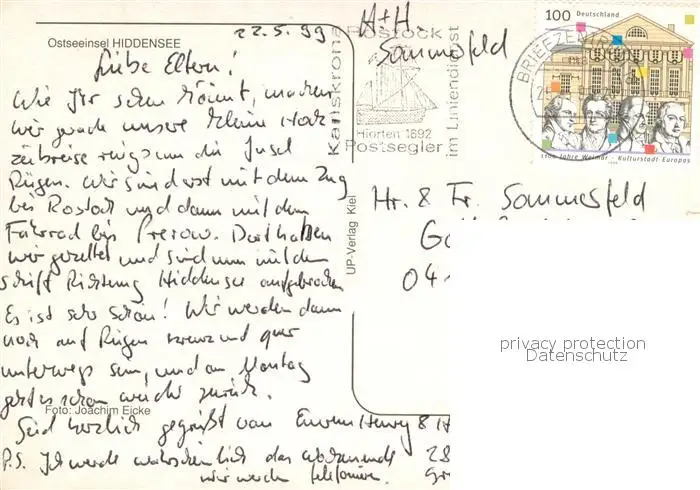 22.5.99
Ostseeinsel HIDDENSEE
Liebe Eltern!
Wie Ihr sehen könnt, machen
wir gerade unsere kleine Hoch
zeitsreise rings um die Insel
Rügen. Wir sind erst mit dem Zug
bis Rostock und dann mit dem
Fahrrad bis Prerow. Dort haben
wir gezeltet und sind nun mit dem
Schiff Richtung Hiddensee aufgebrochen
Es ist sehr schön! Wir werden dann
noch auf Rügen kreuz und quer
unterwegs sein, und am Montag
geht es schon wieder zurück.
Foto: Joachim Eicke
Seid herzlich gegrüßt von Eurem Henry &
P.S. Ich werde wahrscheinlich das Wochenende
wir werden telefonieren.
UP-Verlag Kiel
H+H
Sommesfeld
Rostock
Karlskrona
Hiorten 1892
Postsegler
im Liniendienst
BRIEFZENTRUM
100 Deutschland
1100 Jahre Weimar · Kulturstadt Europas
Hr. & Fr. Sommesfeld
Ga
04
28
Gr
privacy protection
Datenschutz